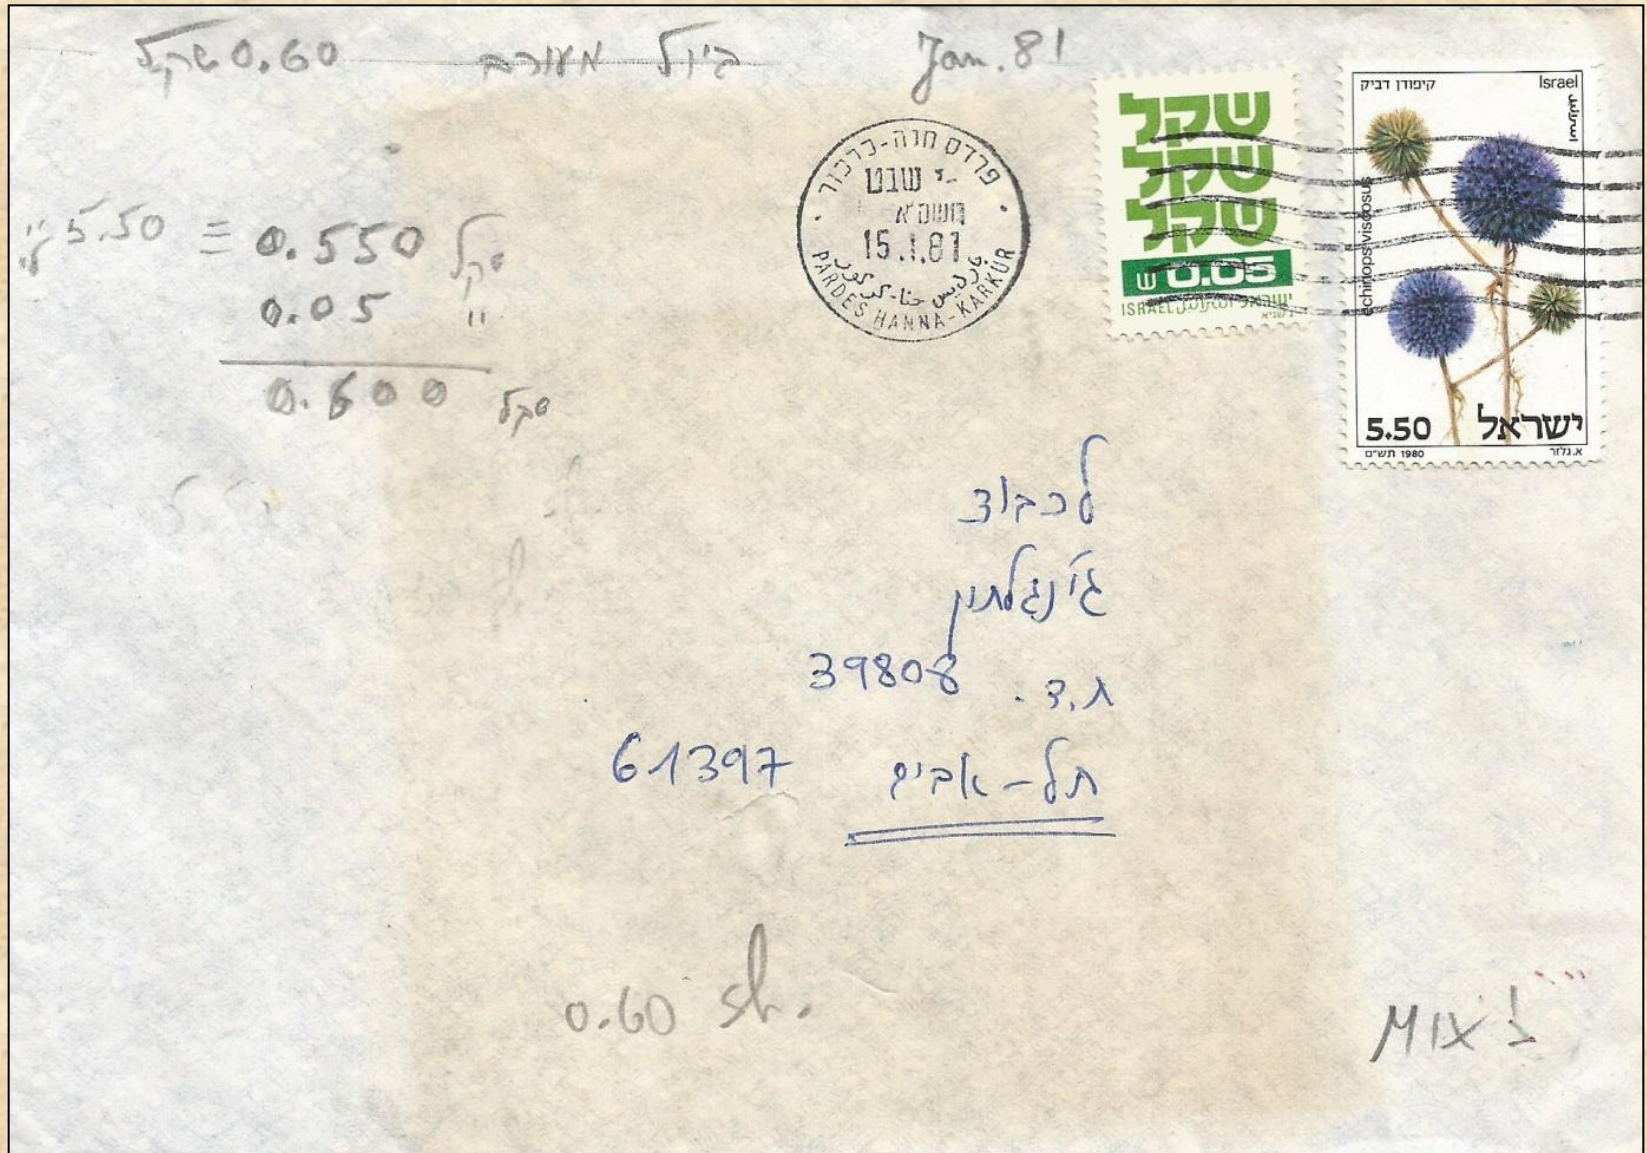 0.60 שקל ביול מעורב Jan. 81
5.50 ל"י ≡ 0.550 שקל
0.05 "
0.600 שקל
פרדס חנה-כרכור
י' שבט
תשמ"א
15.1.81
پارديس حنا-كركور
PARDES HANNA-KARKUR
שקל
שקל
שקל
ש 0.05
ISRAEL اسرائيل ישראל
קיפודן דביק Israel
اسرائيل
echinops viscosus
5.50 ישראל
1980 תש"ם א. גלזר
לכבוד
ג'ינגלתון
ת.ד. 39808
תל-אביב 61397
0.60 sh.
MIX